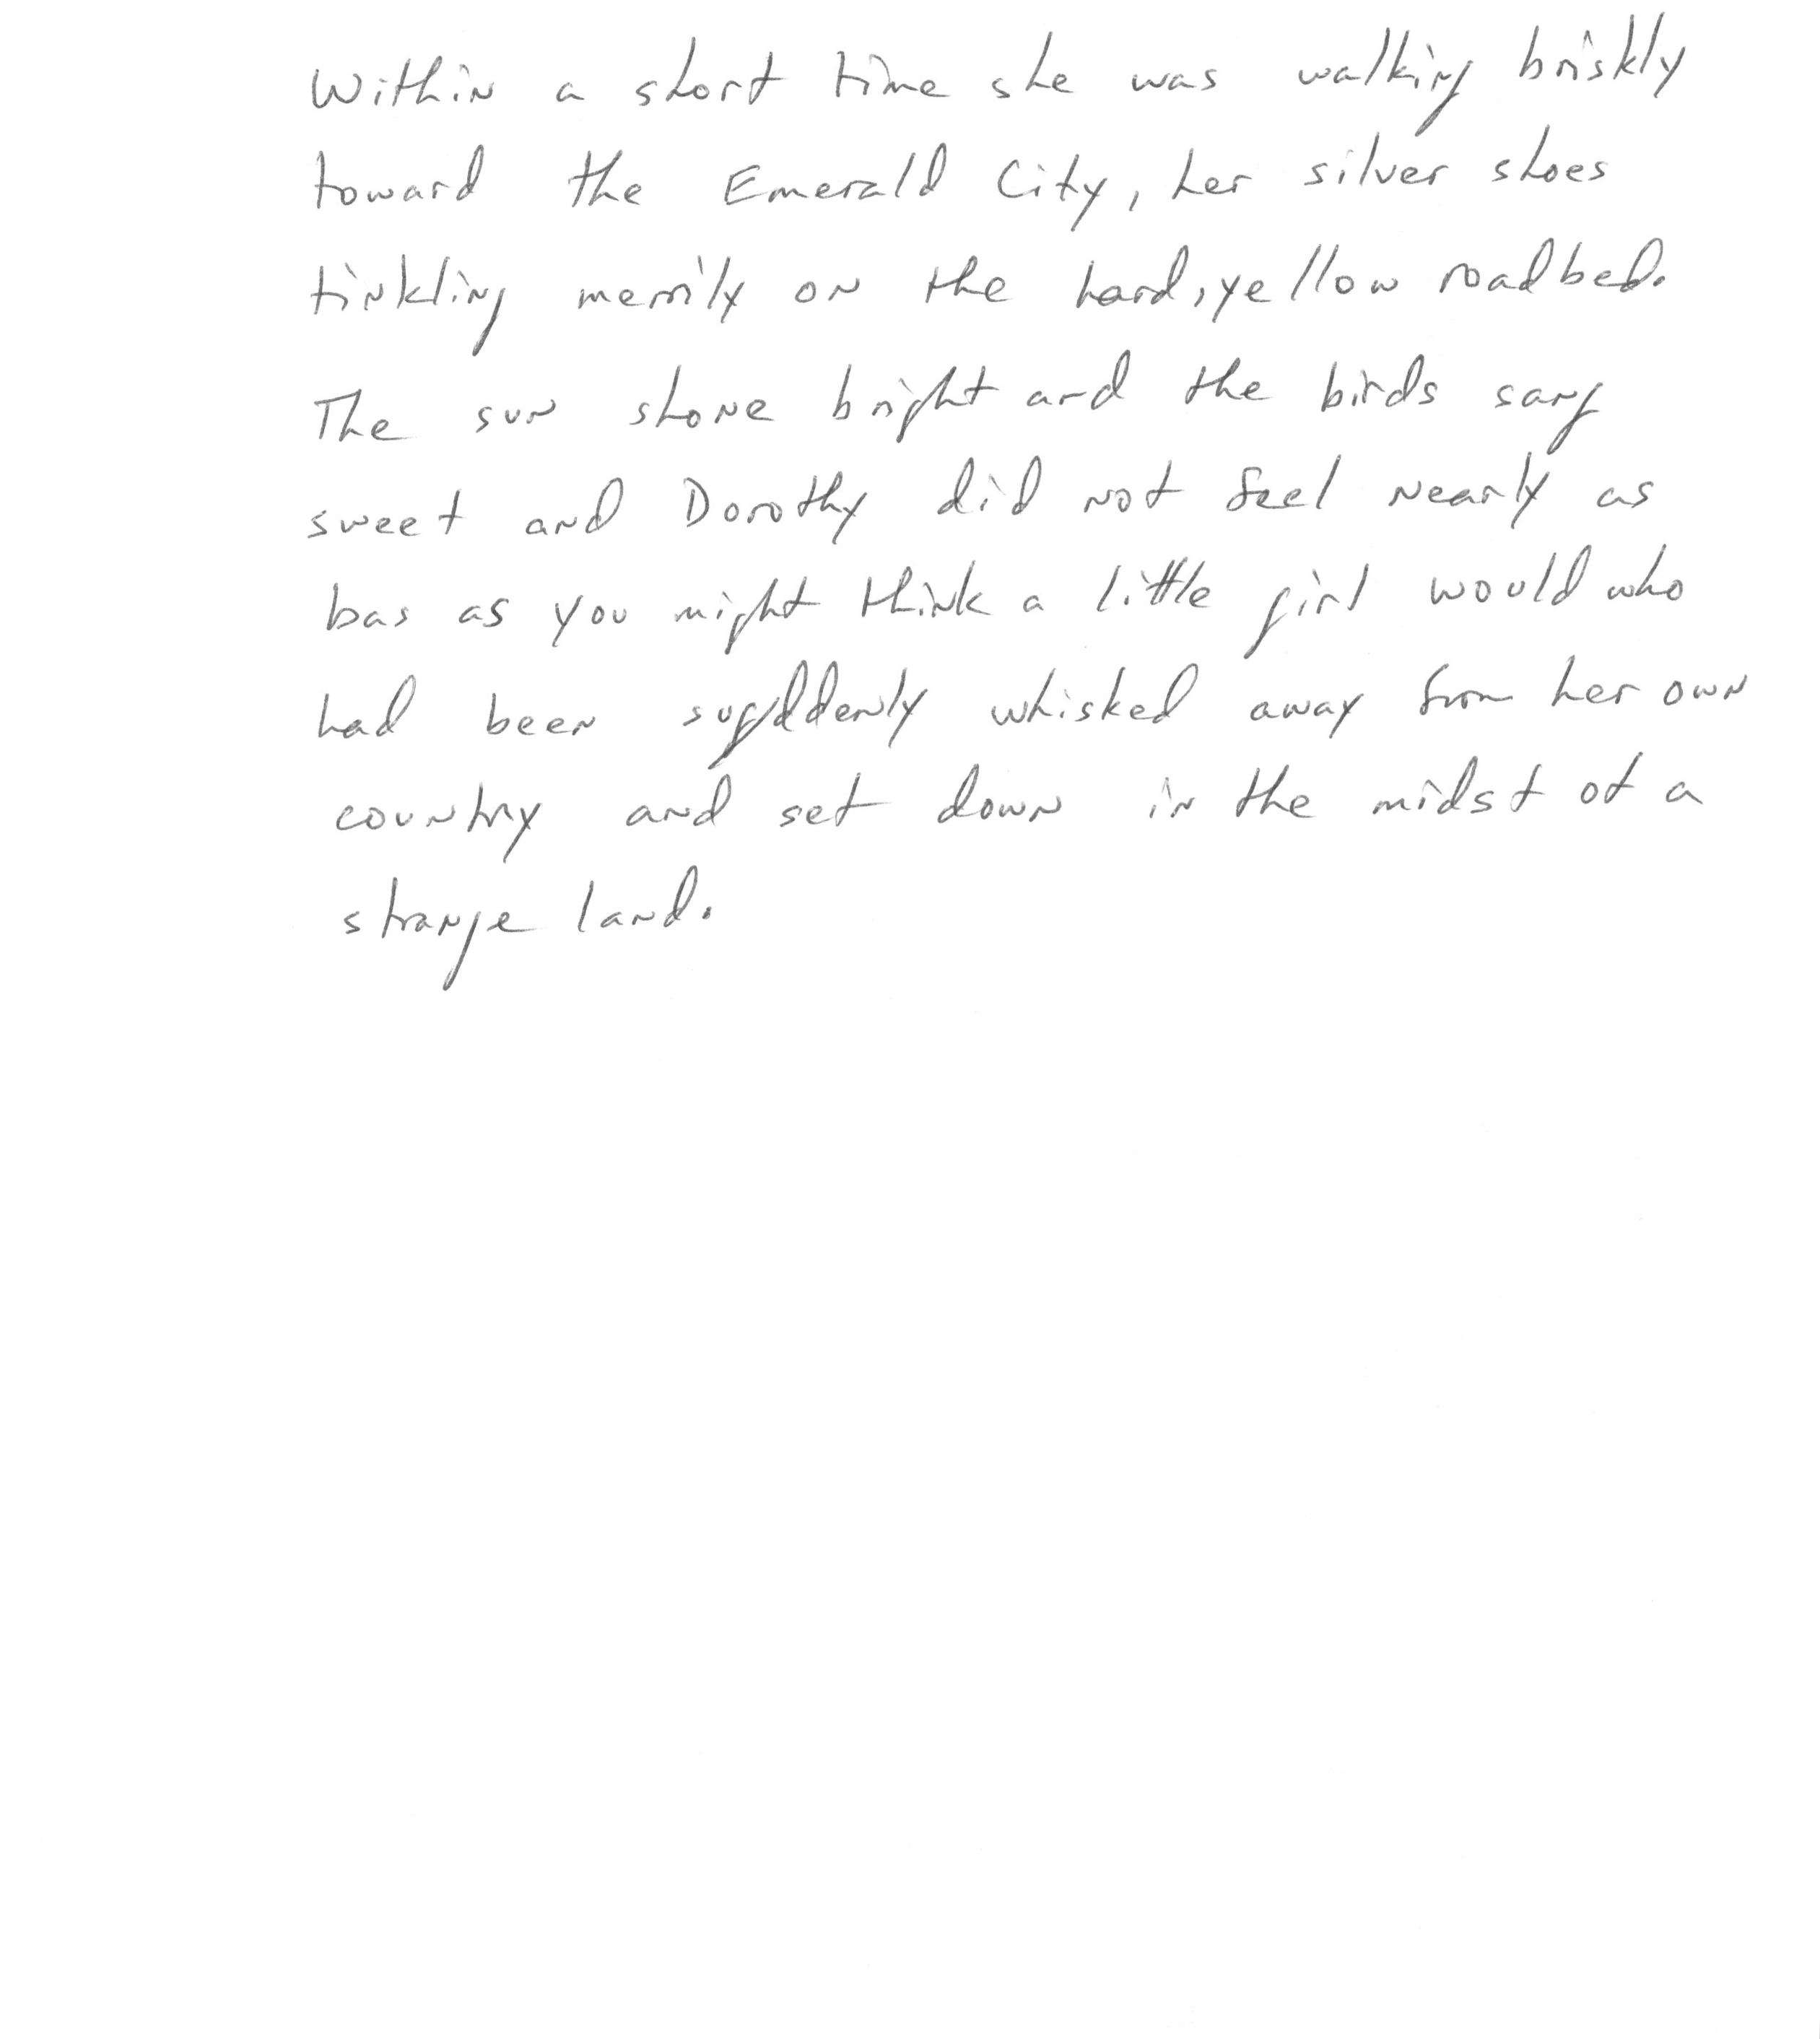 Within a short time she was walking briskly
toward the Emerald City, her silver shoes
tinkling merrily on the hard, yellow roadbed.
The sun shone bright and the birds sang
sweet and Dorothy did not feel nearly as
bas as you might think a little girl would who
had been sugddenly whisked away from her own
country and set down in the midst of a
strange land.